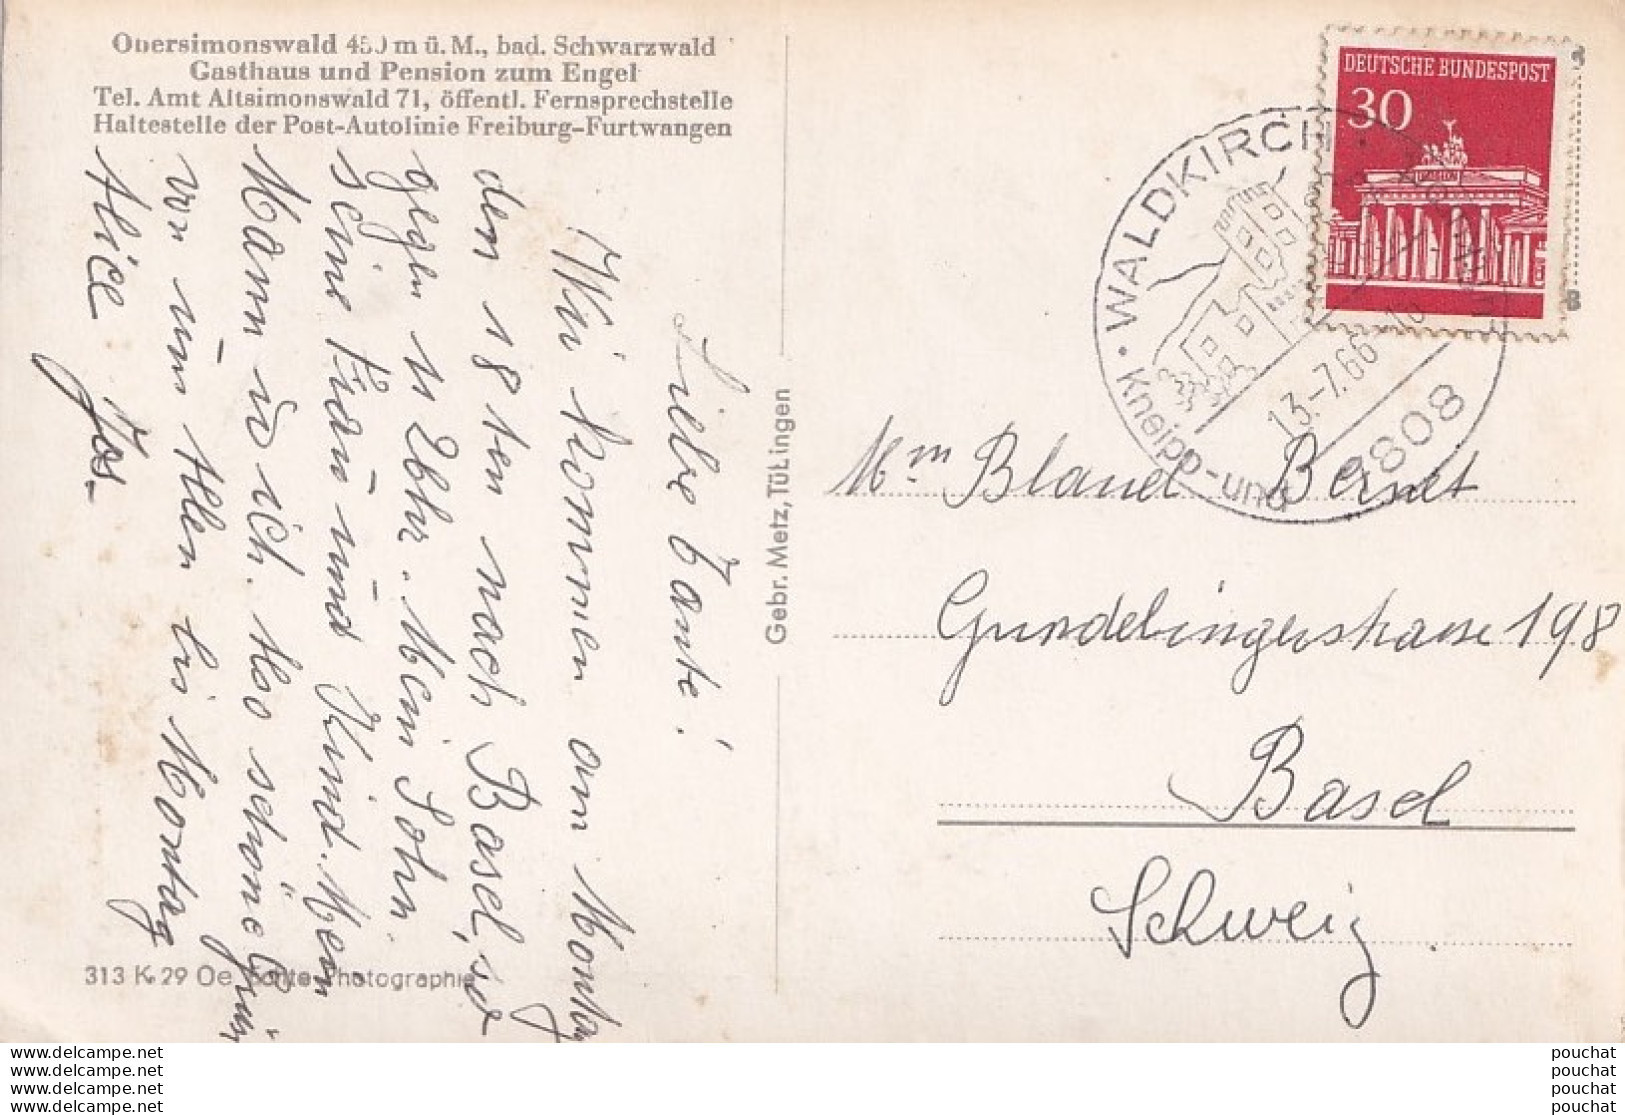 Obersimonswald 450 m ü. M., bad. Schwarzwald
Gasthaus und Pension zum Engel
Tel. Amt Altsimonswald 71, öffentl. Fernsprechstelle
Haltestelle der Post-Autolinie Freiburg-Furtwangen
Liebe Tante!
Wir kommen am Montag
den 18 ten nach Basel, so
gegen 11 Uhr. Mein Sohn.
seine Frau und Kind. Mein
Mann u ich. Also schöne Grüsse
von uns Allen bis Montag
Alice Jos-
313 K 29 Oe Echte Photographie
Gebr. Metz, Tübingen
DEUTSCHE BUNDESPOST
30
WALDKIRCH
Kneipp-und
13.-7.66-10
7808
Mm Bernet
Gundeldingerstrasse 198
Basel
Schweiz
www.delcampe.net
www.delcampe.net
www.delcampe.net
www.delcampe.net
pouchat
pouchat
pouchat
pouchat